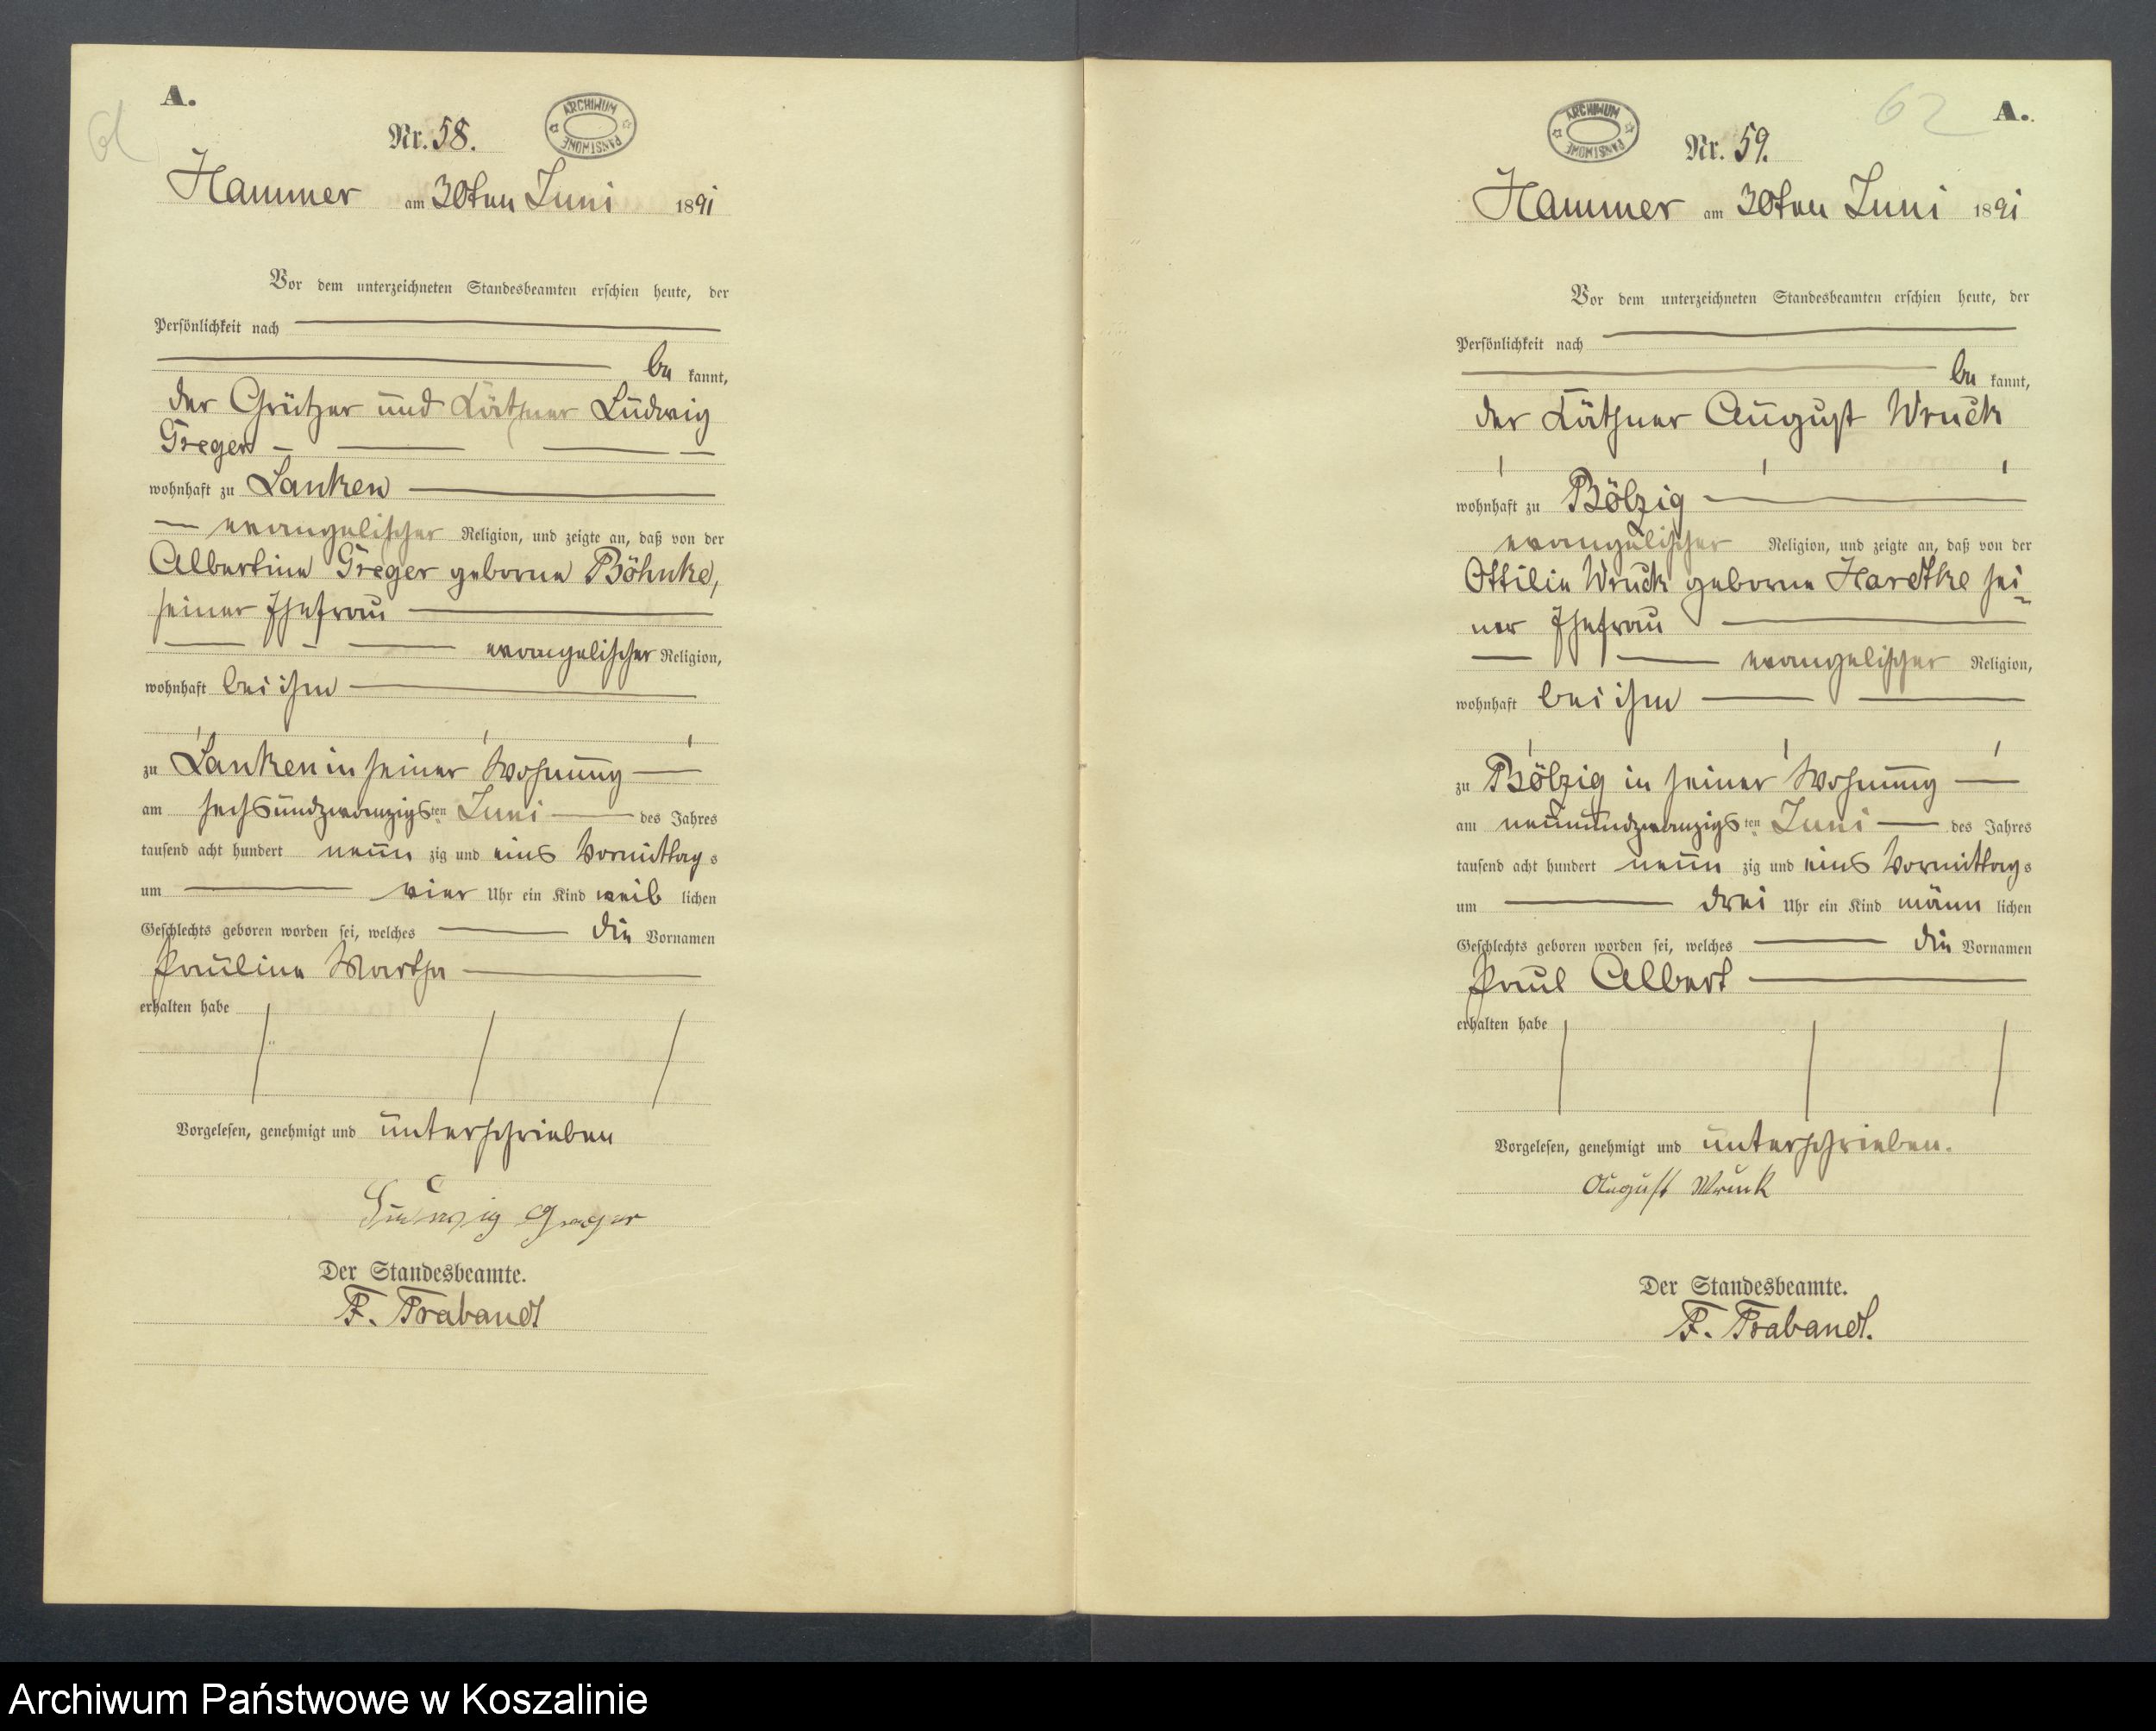 A.
61
Nr. 58.
ARCHIWUM PAŃSTWOWE
Hammer am 30ten Juni 1891
Vor dem unterzeichneten Standesbeamten erschien heute, der
Persönlichkeit nach
be kannt,
der Grützer und Käthner Ludwig
Greger
wohnhaft zu Lanken
evangelischer Religion, und zeigte an, daß von der
Albertine Greger geborne Böhnke,
seiner Ehefrau
evangelischer Religion,
wohnhaft bei ihm
zu Lanken in seiner Wohnung
am sechsundzwanzigsten Juni des Jahres
tausend acht hundert neun zig und eins Vormittags
um vier Uhr ein Kind weib lichen
Geschlechts geboren worden sei, welches die Vornamen
Pauline Martha
erhalten habe
Vorgelesen, genehmigt und unterschrieben
Ludwig Greger
Der Standesbeamte.
F. Trabandt
62
A.
ARCHIWUM PAŃSTWOWE
Nr. 59.
Hammer am 30ten Juni 1891
Vor dem unterzeichneten Standesbeamten erschien heute, der
Persönlichkeit nach
be kannt,
der Käthner August Wruck
wohnhaft zu Bölzig
evangelischer Religion, und zeigte an, daß von der
Ottilie Wruck geborne Hardtke sei-
ner Ehefrau
evangelischer Religion,
wohnhaft bei ihm
zu Bölzig in seiner Wohnung
am neunundzwanzigsten Juni des Jahres
tausend acht hundert neun zig und eins Vormittags
um drei Uhr ein Kind männ lichen
Geschlechts geboren worden sei, welches die Vornamen
Paul Albert
erhalten habe
Vorgelesen, genehmigt und unterschrieben.
August Wruck
Der Standesbeamte.
F. Trabandt.
Archiwum Państwowe w Koszalinie